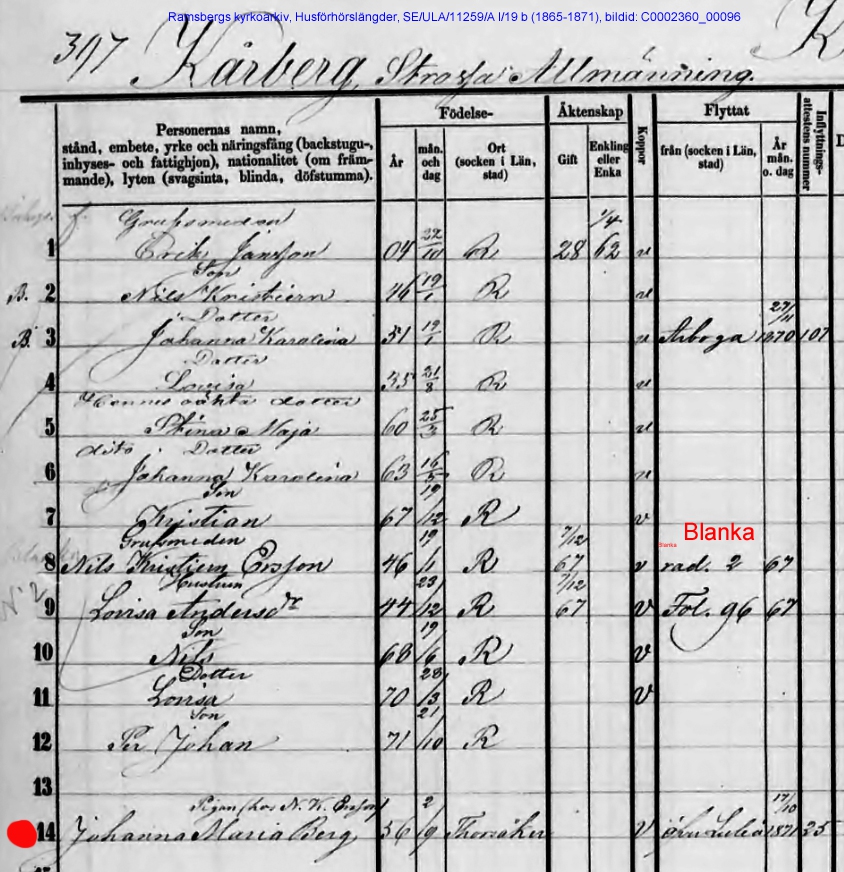 Ramsbergs kyrkoarkiv, Husförhörslängder, SE/ULA/11259/A I/19 b (1865-1871), bildid: C0002360_00096
397 Kårberg, Strossa Allmänning.
Födelse- Äktenskap Flyttat
Personernas namn,
stånd, embete, yrke och näringsfång (backstugu-,
inhyses- och fattighjon), nationalitet (om främ-
mande), lyten (svagsinta, blinda, döfstumma).
År mån. och dag Ort (socken i Län, stad) Gift Enkling eller Enka Koppor från (socken i Län, stad) År mån. o. dag Inflyttnings-attestens nummer
Grufsmeden 1/4
1 Erik Jansson 04 22/10 R 28 62 n
Son
B. 2 Nils Kristiern 46 19/1 R n
Dotter 27/11
B. 3 Johanna Karolina 51 19/1 R n Arboga 1870 107
Dotter
4 Lovisa 35 21/8 R n
Hennes oäkta dotter
5 Stina Maja 60 25/3 R n
dito Dotter
6 Johanna Karolina 63 16/5 R n
Son
7 Kristian 67 19/12 R v
Blanka
Blanka
Grufsmeden 7/12
8 Nils Kristiern Ersson 46 19/1 R 67 v rad. 2 67
Hustrun 7/12
N 2
9 Lovisa Andersdr 44 23/12 R 67 v Fol. 96 67
Son
10 Nils 68 19/6 R v
Dotter
11 Lovisa 70 28/3 R v
Son
12 Per Johan 71 21/10 R
13
Pigan (hos N. K. Ersson) 17/10
14 Johanna Maria Berg 56 2/9 Thorsåker v öfver Luleå 1871 25